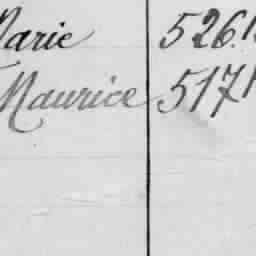 Marie 526.
Maurice 517